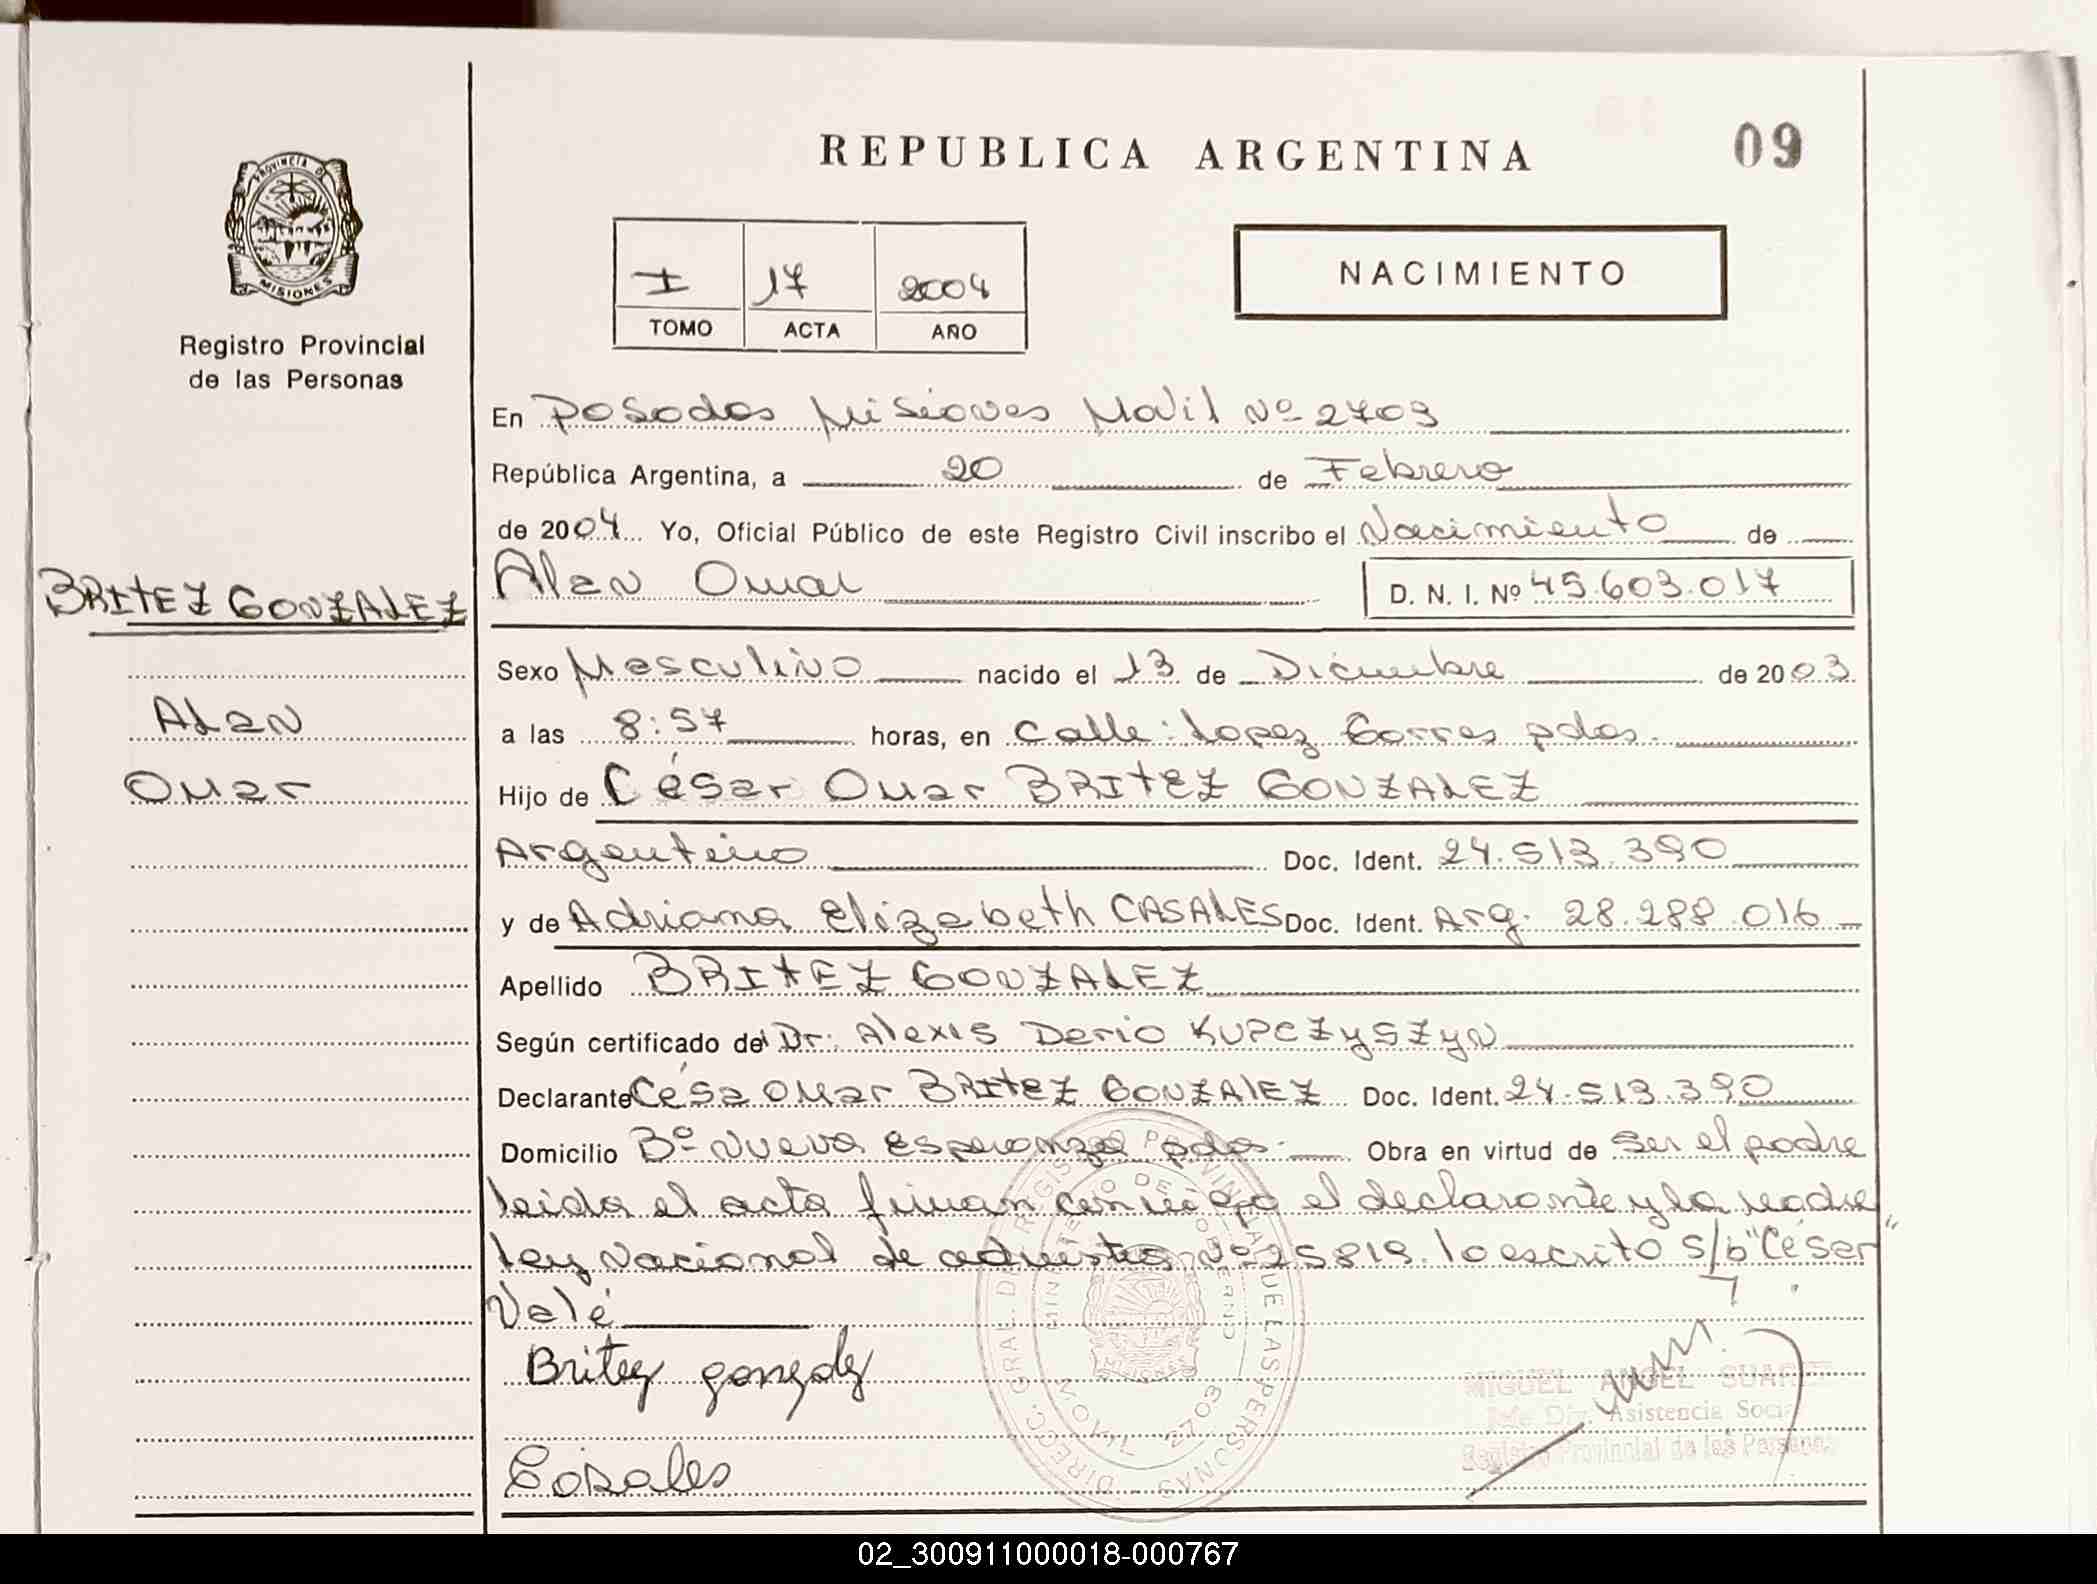 REPUBLICA ARGENTINA
09
PROVINCIA DE
MISIONES
Registro Provincial
de las Personas
I 17 2004
TOMO ACTA AÑO
NACIMIENTO
En Posadas Misiones Movil Nº 2703
República Argentina, a 20 de Febrero
de 2004 Yo, Oficial Público de este Registro Civil inscribo el Nacimiento de
BRITEZ GONZALEZ
Alan Omar D. N. I. Nº 45.603.017
Sexo Masculino nacido el 13 de Diciembre de 2003
Alan
a las 8:57 horas, en Calle: Lopez Torres pdas.
Omar
Hijo de César Omar BRITEZ GONZALEZ
Argentino Doc. Ident. 24.513.390
y de Adriana Elizabeth CASALES Doc. Ident. Arg. 28.288.016
Apellido BRITEZ GONZALEZ
Según certificado del Dr. Alexis Dario KUPCZYSZYN
Declarante Césa Omar BRITEZ GONZALEZ Doc. Ident. 24.513.390
Domicilio Bº Nueva Esperanza pdas. Obra en virtud de Ser el padre
leida el acta firman conmigo el declarante y la madre
ley Nacional de adm Nº 25819. lo escrito s/b "César"
Valé
Britez gonzalez
Casales
DIRECC. GRAL. DE REGISTRO PROVINCIAL DE LAS PERSONAS
MINISTERIO DE GOBIERNO
MOVIL 2703
MIGUEL ANGEL SUAREZ
Jefe Dto. Asistencia Social
Registro Provincial de las Personas
02_300911000018-000767